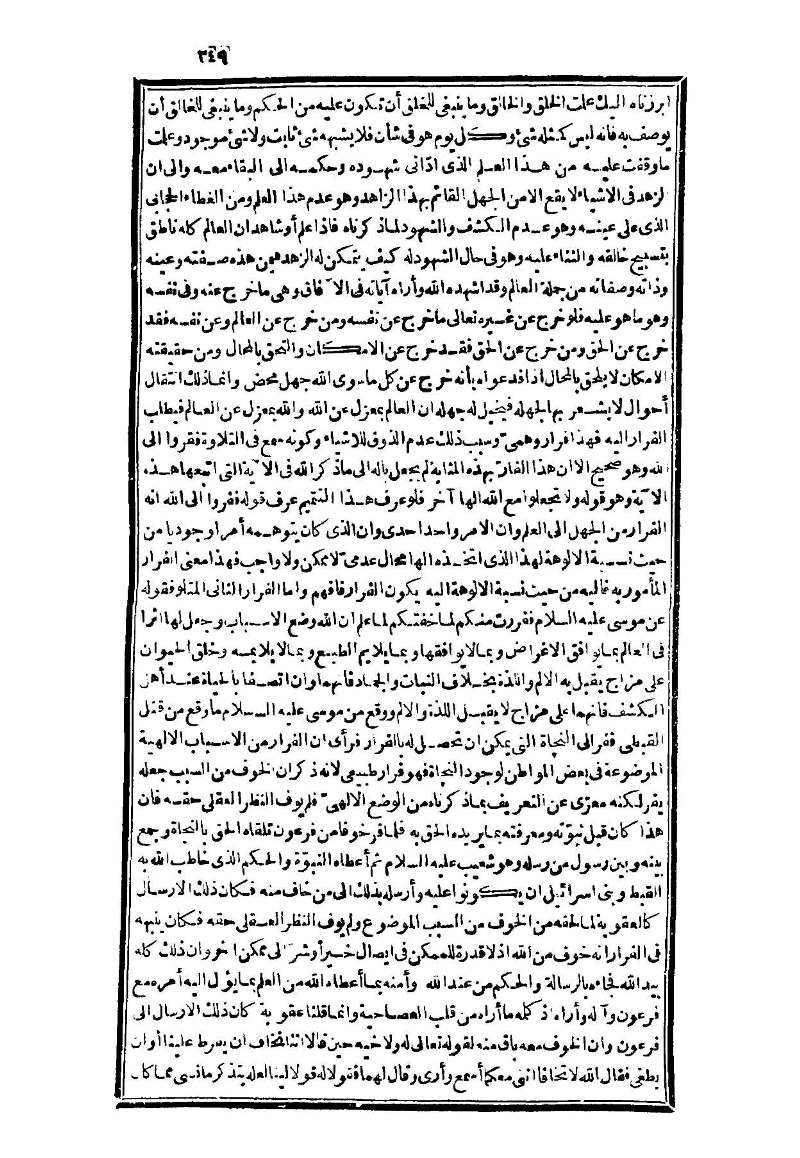 ٣٤٩
ابرزناه اليك علمت الخلق والخالق وما ينبغى للخلق أن تكون عليه من الحكم وما ينبغى للخالق أن
يوصف به فانه ليس كمثله شئ وكل يوم هو فى شأن فلا يشبهه شئ ثابت ولا شئ موجود وعلمت
ما وقفت عليه من هذا العلم الذى ادّانى شهوده وحكمه الى البقاء معه والى ان
الزهد فى الاشياء لا يقع الا من الجهل القائم بهذا الزاهد وهو عدم هذا العلم ومن الغطاء الحجابى
الذى على عينه وهو عدم الكشف والشهود لما ذكرناه فاذا علم أو شاهد ان العالم كله ناطق
بتسبيح خالقه والثناء عليه وهو فى حال الشهود له كيف يتمكن له الزهد فيمن هذه صفته وعينه
وذاته وصفاته من جملة العالم وقد اشهده الله وأراه آياته فى الآفاق وهى ما خرج عنه وفى نفسه
وهو ما هو عليه فلو خرج عن غيره تعالى ما خرج عن نفسه ومن خرج عن العالم وعن نفسه فقد
خرج عن الحق ومن خرج عن الحق فقد خرج عن الامكان والتحق بالمحال ومن حقيقته
الامكان لا يلحق بالمحال اذا فدعواه بأنه خرج عن كل ما سوى الله جهل محض وانما ذلك انتقال
أحوال لا يشعر بها لجهله فيخيل له جهله ان العالم بمعزل عن الله والله بمعزل عن العالم فيطلب
الفرار اليه فهذا فرار وهمى وسبب ذلك عدم الذوق للاشياء وكونه سمع فى التلاوة ففروا الى
الله وهو صحيح الا ان هذا الفارّ بهذه المثابة لم يجعل باله الى ما ذكر الله فى الآية التى اتبعها هذه
الآية وهو قوله ولا تجعلوا مع الله الها آخر فلو عرف هذا التتميم عرف قوله ففروا الى الله انه
الفرار من الجهل الى العلم وان الامر واحد احدى وان الذى كان يتوهمه أمرا وجوديا من
حيث نسبة الالوهة لهذا الذى اتخذه الها محال عدمى لا ممكن ولا واجب فهذا معنى الفرار
المأمور به فاليه من حيث نسبة الالوهة اليه يكون الفرار فافهم واما الفرار الثانى المتلو فقوله
عن موسى عليه السلام ففررت منكم لما خفتكم لما علم ان الله وضع الاسباب وجعل لها اثرا
فى العالم بما يوافق الاغراض وبما لا يوافقها وبما يلايم الطبيع وبما لا يلايمه وخلق الحيوان
على مزاج يقبل به الالم واللذة بخلاف النبات والجماد فانهما وان اتصفا بالحياة عند أهل
الكشف فانهما على مزاج لا يقبل اللذة والالم ووقع من موسى عليه السلام ما وقع من قتل
القبطى ففر الى النجاة التى يمكن ان تحصل له بالفرار فرأى ان الفرار من الاسباب الالهية
الموضوعة فى بعض المواطن لوجود النجاة فهو فرار طبيعى لانه ذكر ان الخوف من السبب جعله
يفر لكنه معرّى عن التعريف بما ذكرناه من الوضع الالهى فلم يوف النظر العقلى حقه فان
هذا كان قبل نبوّته ومعرفته بما يريده الحق به فلما فرّ خوفا من فرعون تلقاه الحق بالنجاة وجمع
بينه وبين رسول من رسله وهو شعيب عليه السلام ثم أعطاه النبوّة والحكم الذى خاطب الله به
القبط وبنى اسرائيل ان يكونوا عليه وأرسله بذلك الى من خاف منه فكان ذلك الارسال
كالعقوبة لما لحقه من الخوف من السبب الموضوع ولم يوف النظر العقلى حقه فكان ينبهه
فى الفرار انه خوف من الله اذ لا قدرة للممكن فى ايصال خير أو شر الى ممكن اخر وان ذلك كله
بيد الله فجاءه بالرسالة والحكم من عند الله وأمنه بما أعطاه الله من العلم بما يؤل اليه أمره مع
فرعون وآله وأراه اذ كلمه ما أراه من قلب العصا حية وانما قلنا عقوبة كان ذلك الارسال الى
فرعون وان الخوف معه باق منه لقوله تعالى له ولاخيه حين قالا اننا نخاف ان يفرط علينا أو ان
يطغى فقال الله لا تخافا اننى معكما أسمع وأرى وقال لهما فقولا له قولا لينا لعله يتذكر ما نسى مما كان